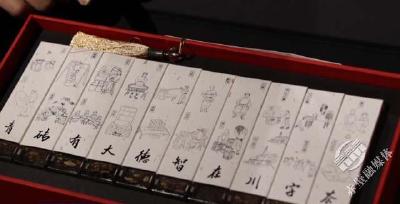 青砖有大德智在川字茶
赤壁融媒体